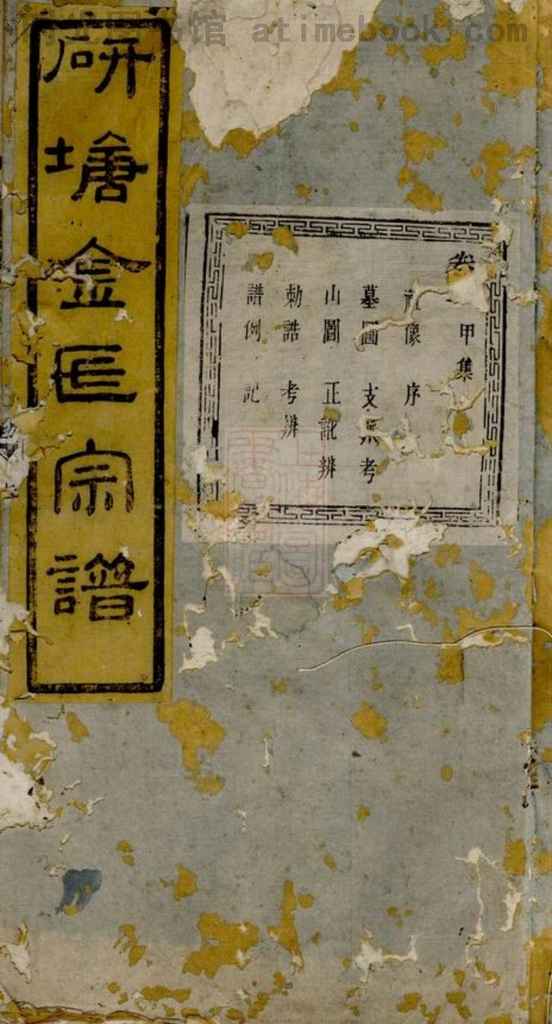 馆 atimebook.com
研塘金匠宗譜
卷 甲集
像 序
墓圖 支 考
山圖 正訛辨
勅誥 考辨
譜例 記